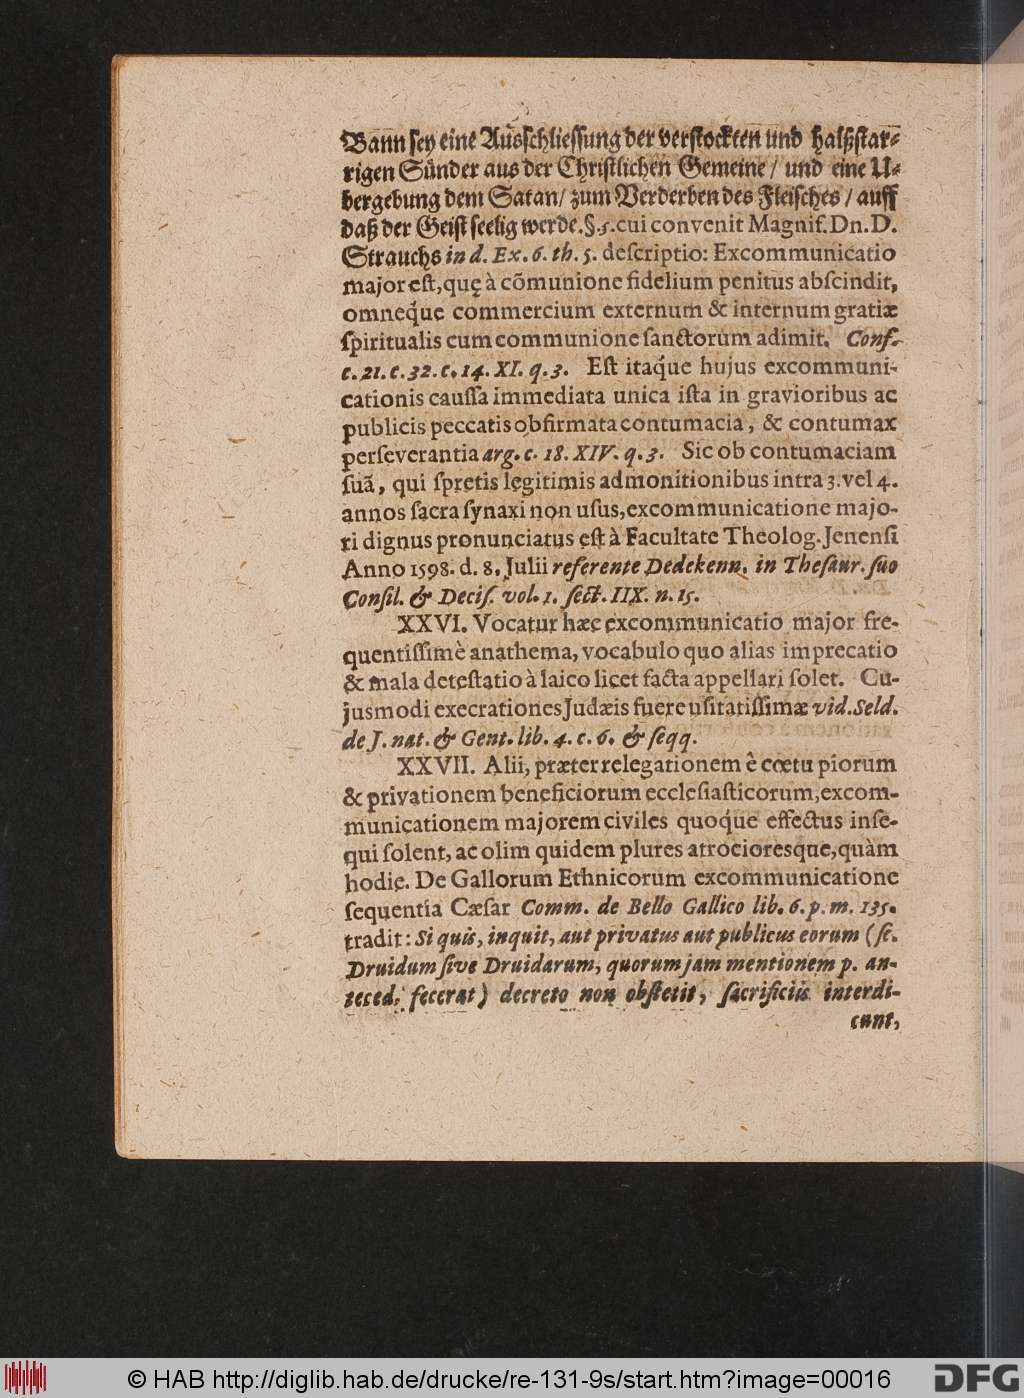 Bann sey eine Ausschliessung der verstockten und halßstar-
rigen Sünder aus der Christlichen Gemeine / und eine U-
bergebung dem Satan / zum Verderben des Fleisches / auff
daß der Geist seelig werde. §. 5. cui convenit Magnif. Dn. D.
Strauchs in d. Ex. 6. th. 5. deſcriptio: Excommunicatio
major eſt, quę à cõmunione fidelium penitus abſcindit,
omneq́ue commercium externum & internum gratiæ
ſpiritualis cum communione ſanctorum adimit. Conf.
c. 21. c. 32. c. 14. XI. q. 3. Eſt itaq́ue hujus excommuni-
cationis cauſſa immediata unica iſta in gravioribus ac
publicis peccatis obfirmata contumacia, & contumax
perſeverantia arg. c. 18. XIV. q. 3. Sic ob contumaciam
ſuã, qui ſpretis legitimis admonitionibus intra 3. vel 4.
annos ſacra ſynaxi non uſus, excommunicatione majo-
ri dignus pronunciatus eſt à Facultate Theolog. Jenenſi
Anno 1598. d. 8. Julii referente Dedekenn. in Theſaur. ſuo
Conſil. & Deciſ. vol. 1. ſect. IIX. n. 15.
XXVI. Vocatur hæc excommunicatio major fre-
quentiſſimè anathema, vocabulo quo alias imprecatio
& mala deteſtatio à laico licet facta appellari ſolet. Cu-
jusmodi execrationes Judæis fuere uſitatiſſimæ vid. Seld.
de J. nat. & Gent. lib. 4. c. 6. & ſeqq.
XXVII. Alii, præter relegationem ê cœtu piorum
& privationem beneficiorum eccleſiaſticorum, excom-
municationem majorem civiles quoq́ue effectus inſe-
qui ſolent, ac olim quidem plures atrocioresque, quàm
hodie. De Gallorum Ethnicorum excommunicatione
ſequentia Cæſar Comm. de Bello Gallico lib. 6. p. m. 135.
tradit: Si quis, inquit, aut privatus aut publicus eorum (ſc.
Druidum ſive Druidarum, quorum jam mentionem p. an-
teced. fecerat) decreto non obſtetit, ſacrificiis interdi-
cunt,
© HAB http://diglib.hab.de/drucke/re-131-9s/start.htm?image=00016
DFG